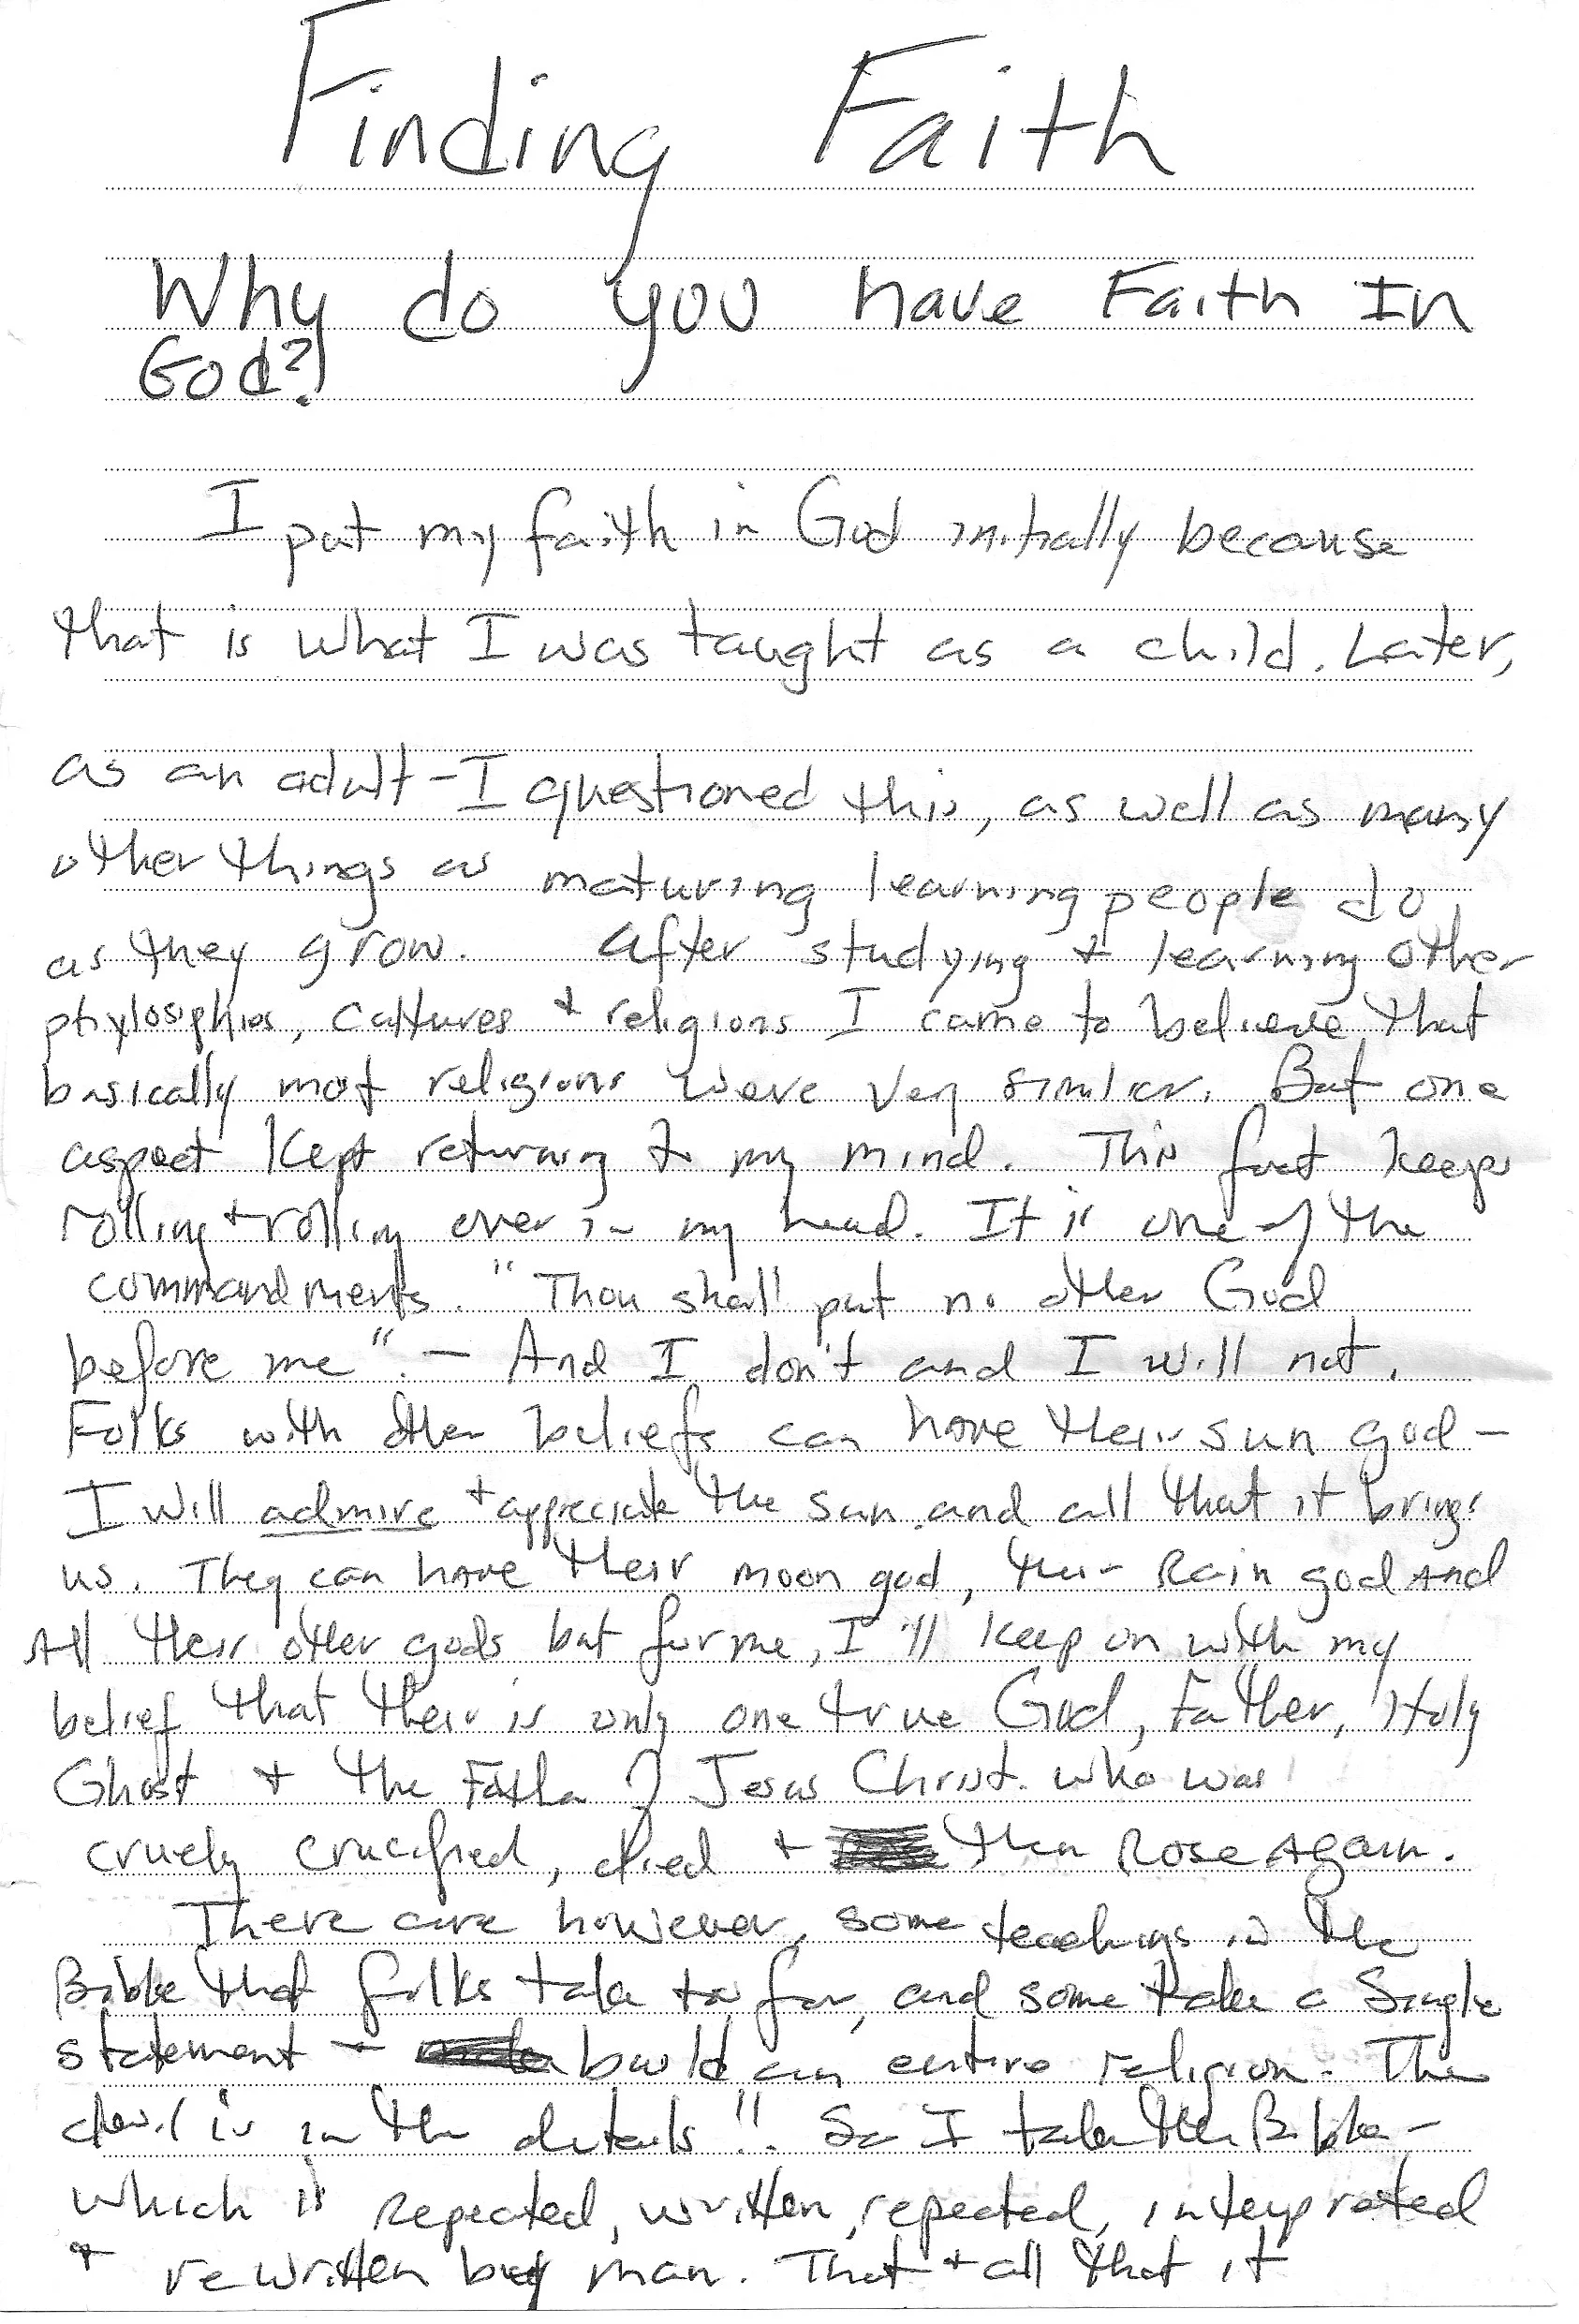 Finding Faith
Why do you have Faith In
God?
I put my faith in God initially because
that is what I was taught as a child. Later,
as an adult - I questioned this, as well as many
other things as maturing learning people do
as they grow. After studying + learning other
phylosiphies, cultures + religions I came to believe that
basically most religions were very similar. But one
aspect kept returning to my mind. This fact keeps
rolling + rolling over in my head. It is one of the
commandments. "Thou shall put no other God
before me". - And I don't and I will not.
Folks with other beliefs can have their sun god -
I will admire + appreciate the sun and all that it brings
us. They can have their moon god, their Rain god And
All their other gods but for me, I'll keep on with my
belief that their is only one true God, Father, Holy
Ghost + the Father of Jesus Christ. who was
cruely crucified, died + then Rose Again.
There are however, some teachings in the
Bible that folks take too far, and some take a Single
statement + build an entire religion. The
devil is in the details!! So I take the Bible -
which is Repeated, written, repeated, interpreted
+ rewritten by man. That + all that it